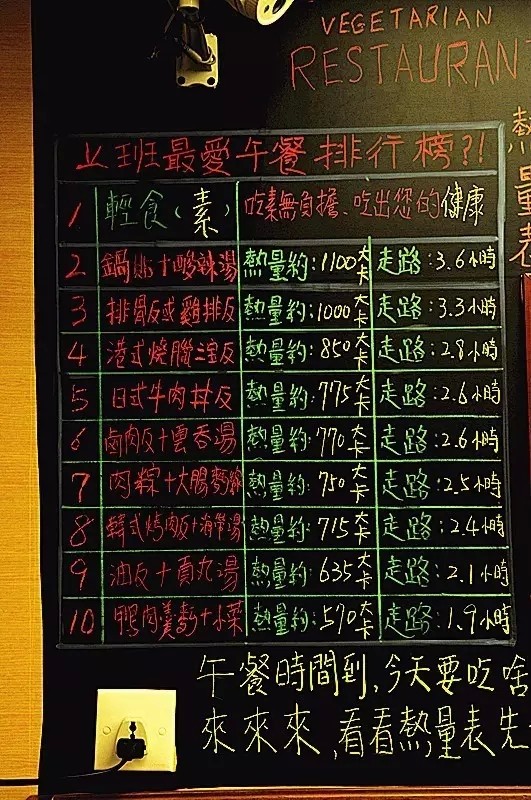 VEGETARIAN
RESTAURAN
熱
量
表
上班最愛午餐排行榜?!
1 輕食(素) 吃素無負擔、吃出您的健康
2 鍋貼+酸辣湯 熱量約:1100大卡 走路:3.6小時
3 排骨反或雞排反 熱量約:1000大卡 走路:3.3小時
4 港式燒臘三宝反 熱量約:850大卡 走路:2.8小時
5 日式牛肉丼反 熱量約:775大卡 走路:2.6小時
6 鹵肉反+雲吞湯 熱量約:770大卡 走路:2.6小時
7 肉粽+大腸麵線 熱量約:750大卡 走路:2.5小時
8 韓式烤肉反+海帶湯 熱量約:715大卡 走路:2.4小時
9 油反+貢丸湯 熱量約:635大卡 走路:2.1小時
10 鴨肉羹麵+小菜 熱量約:570大卡 走路:1.9小時
午餐時間到,今天要吃啥
來來來,看看熱量表先